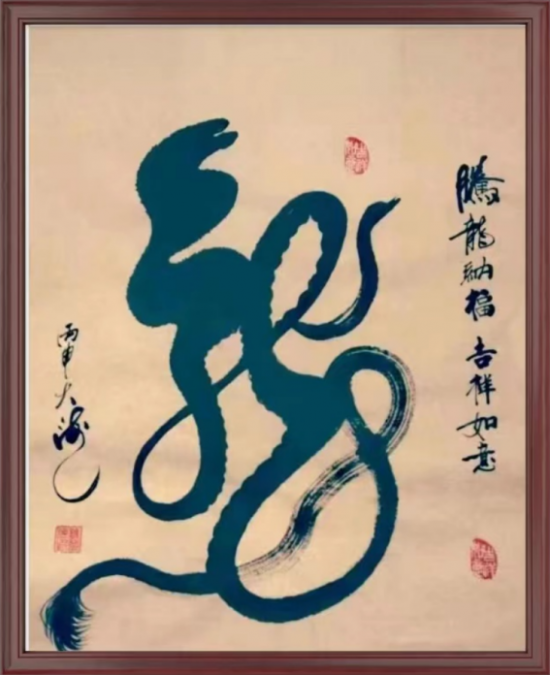 龍
騰龍納福 吉祥如意
丙申大海